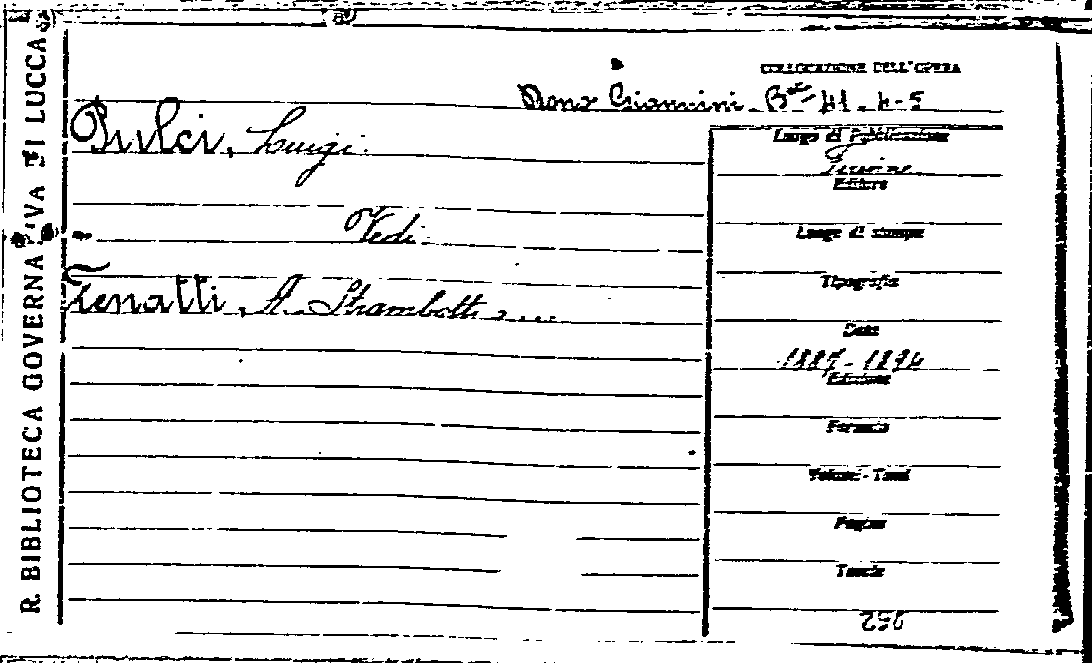 R. BIBLIOTECA GOVERNATIVA DI LUCCA
COLLOCAZIONE DELL'OPERA
Dono Giannini. B.ta 41. 4-5
Pulci, Luigi.
Vedi.
Zenatti, A. Strambotti ....
Luogo di Pubblicazione
Editore
Luogo di stampa
Tipografia
Data
1887-1894
Edizione
Formato
Volumi - Tomi
Pagine
Tavole
252